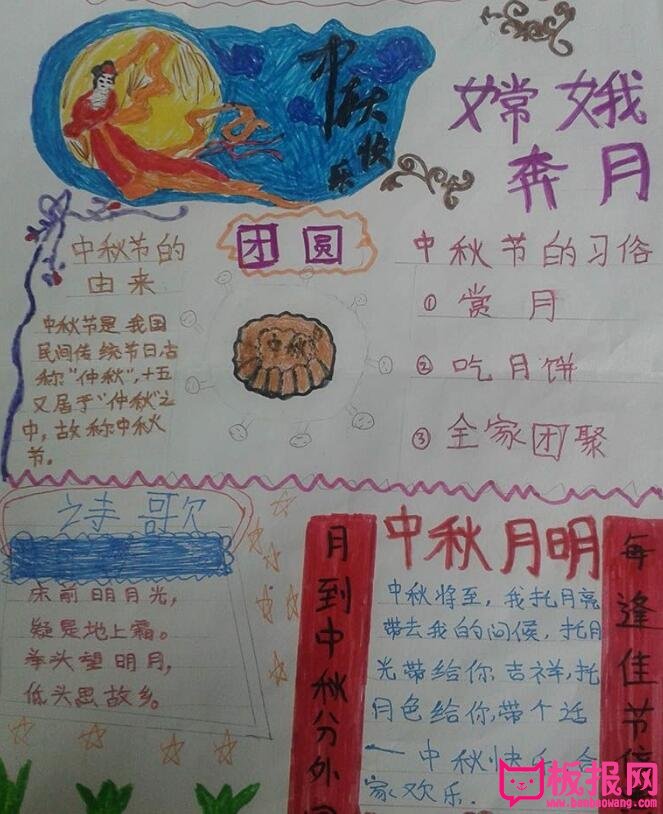 中秋
快乐
嫦娥
奔月
中秋节的
由来
中秋节是我国
民间传统节日,古
称“仲秋”,十五
又居于“仲秋”之
中,故称中秋
节。
团圆
中秋
中秋节的习俗
①赏月
②吃月饼
③全家团聚
诗歌
床前明月光,
疑是地上霜。
举头望明月,
低头思故乡。
月到中秋分外
中秋月明
中秋将至,我托月亮
带去我的问候,托月
光带给你吉祥,托
月色给你,带个话
—中秋快乐,合
家欢乐.
每逢佳节倍
板报网
www.banbaowang.com